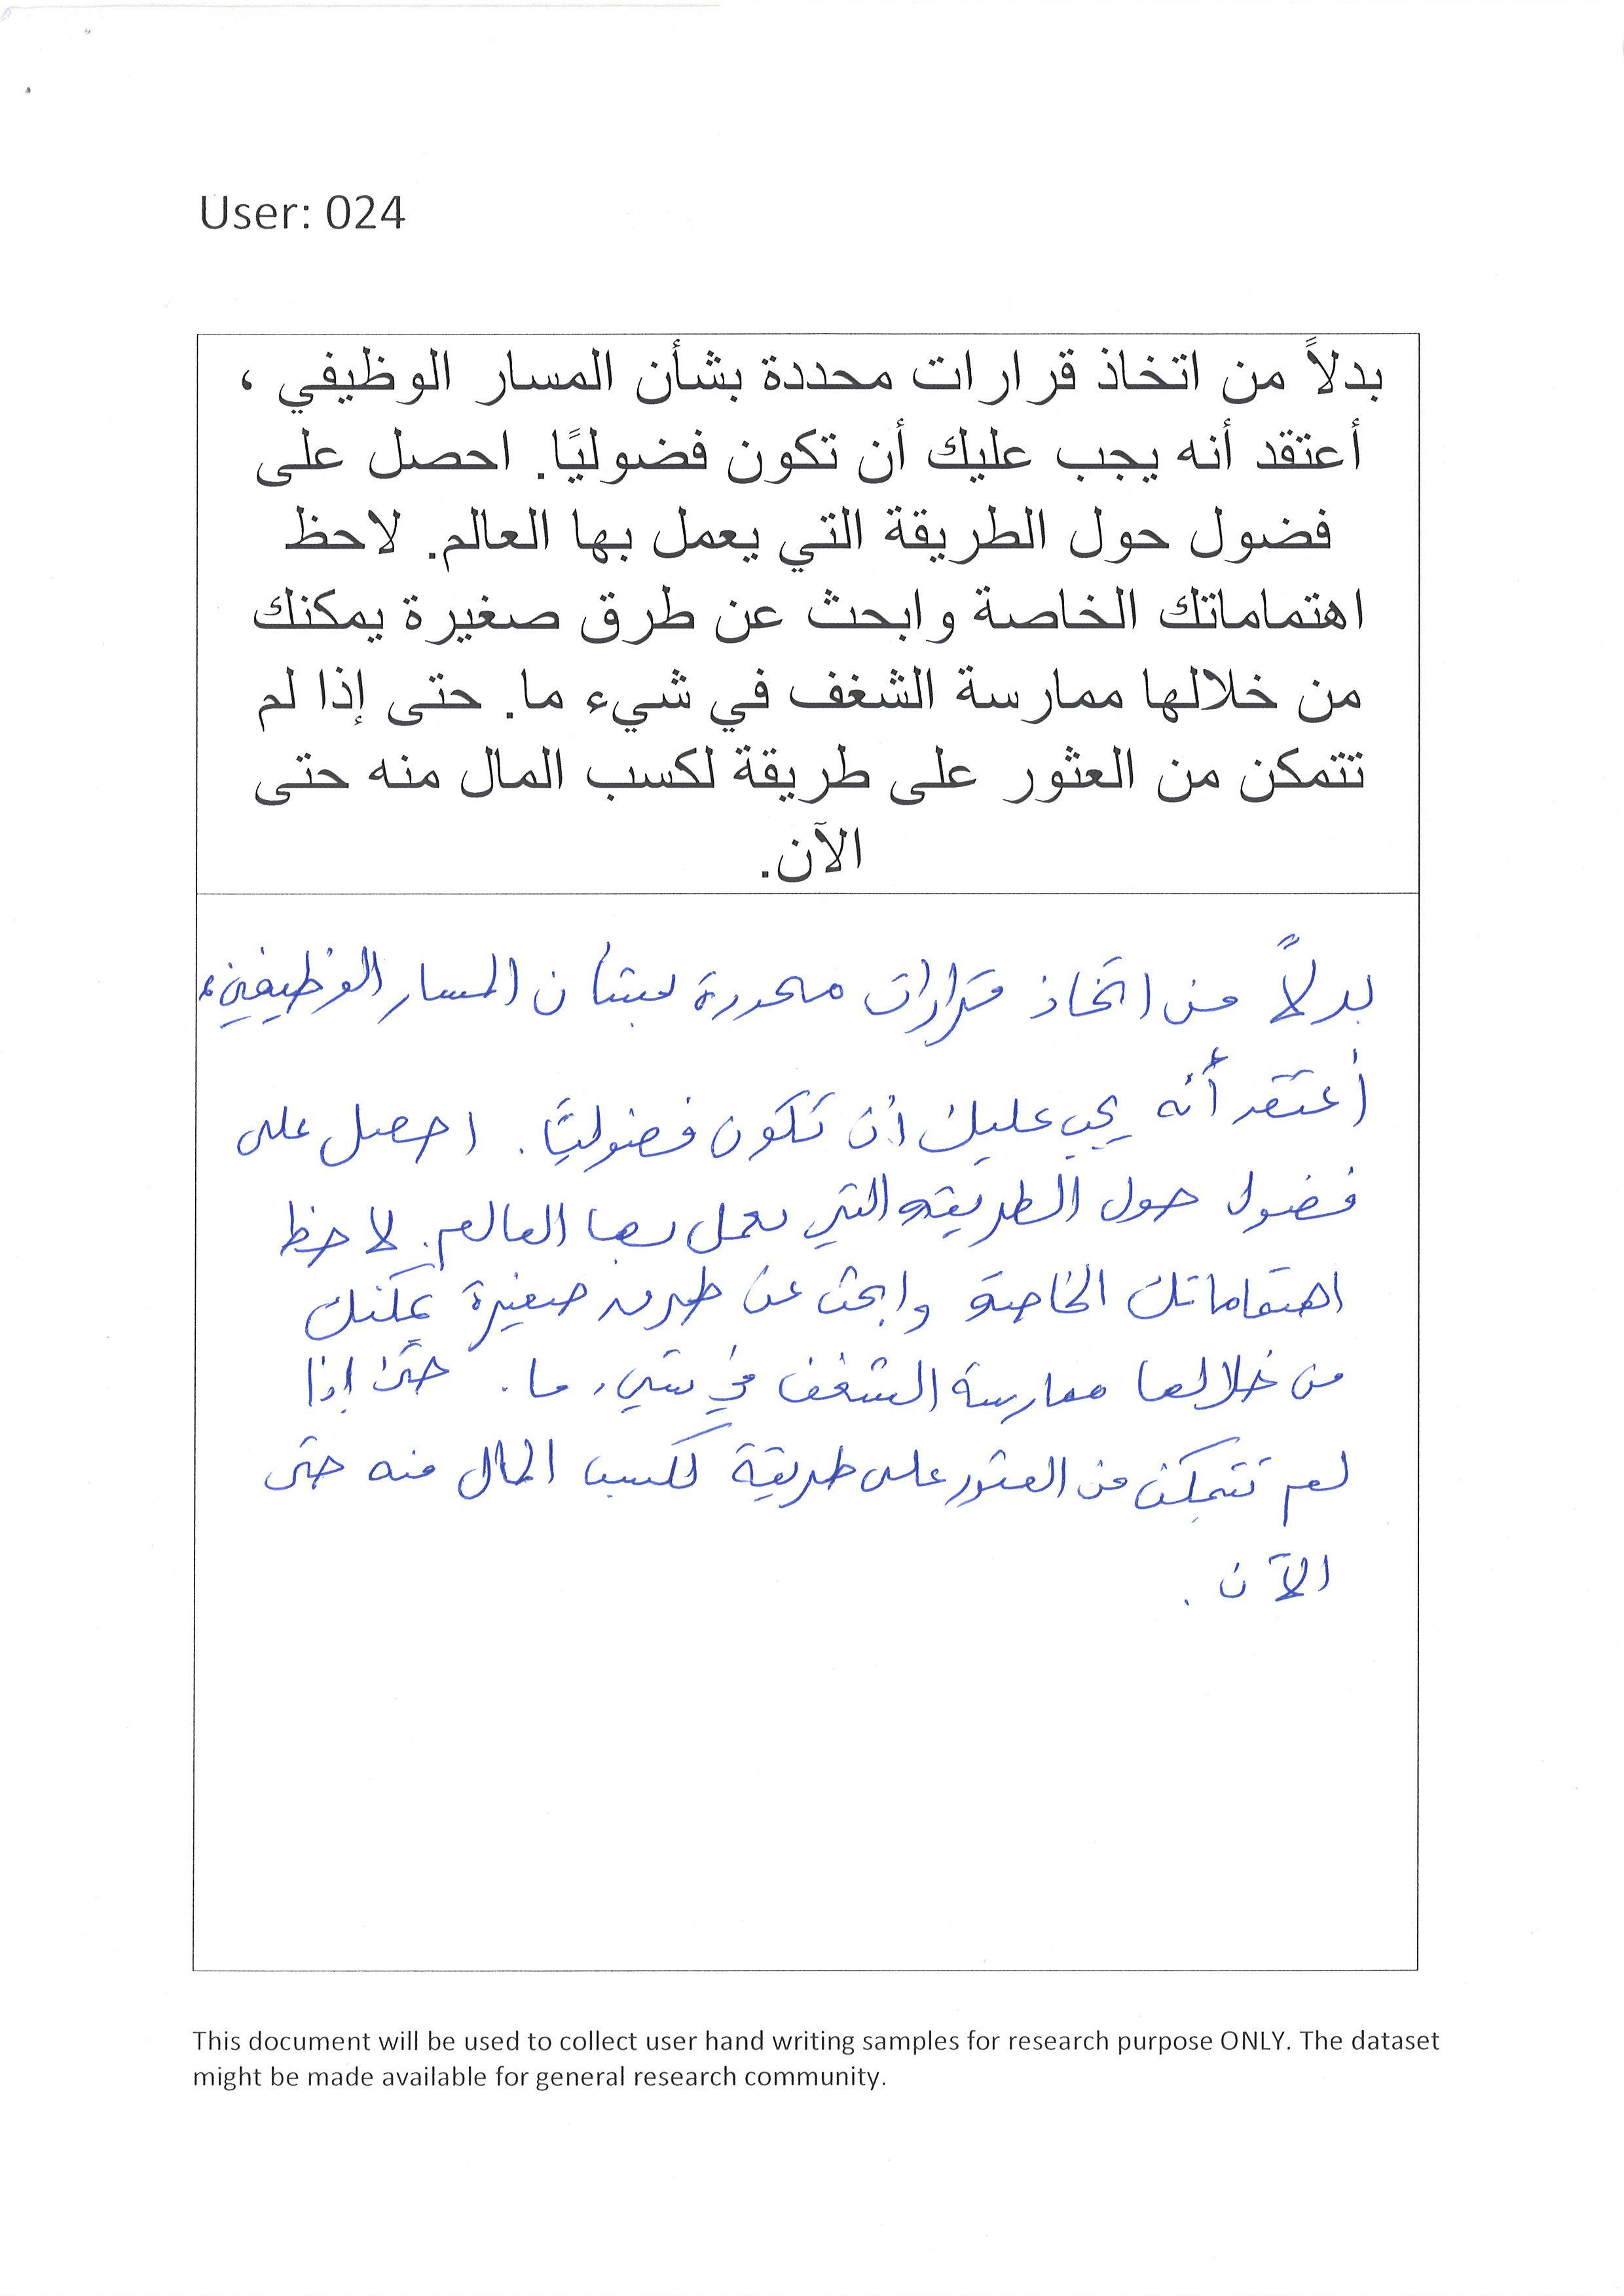 User: 024
بدلاً من اتخاذ قرارات محددة بشأن المسار الوظيفي ،
أعتقد أنه يجب عليك أن تكون فضوليًا. احصل على
فضول حول الطريقة التي يعمل بها العالم. لاحظ
اهتماماتك الخاصة وابحث عن طرق صغيرة يمكنك
من خلالها ممارسة الشغف في شيء ما. حتى إذا لم
تتمكن من العثور على طريقة لكسب المال منه حتى
الآن.
بدلاً من اتخاذ قرارات محددة بشأن المسار الوظيفي،
أعتقد أنه يجب عليك أن تكون فضوليًا. احصل على
فضول حول الطريقة التي يعمل بها العالم. لاحظ
اهتماماتك الخاصة وابحث عن طرق صغيرة يمكنك
من خلالها ممارسة الشغف في شيء ما. حتى إذا
لم تتمكن من العثور على طريقة لكسب المال منه حتى
الآن.
This document will be used to collect user hand writing samples for research purpose ONLY. The dataset
might be made available for general research community.